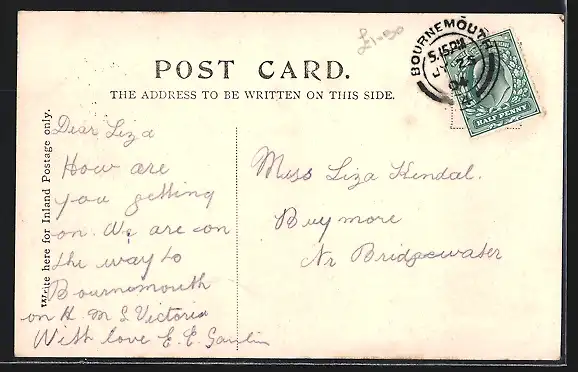 £1-50
BOURNEMOUTH
5.15PM
JY 25
04
HALF PENNY
POST CARD.
THE ADDRESS TO BE WRITTEN ON THIS SIDE.
Write here for Inland Postage only.
Dear Liza
How are
you getting
on. We are on
the way to
Bournemouth
on H M S Victoria
With love E. E.
Miss Liza Kendal.
Nr Bridgewater